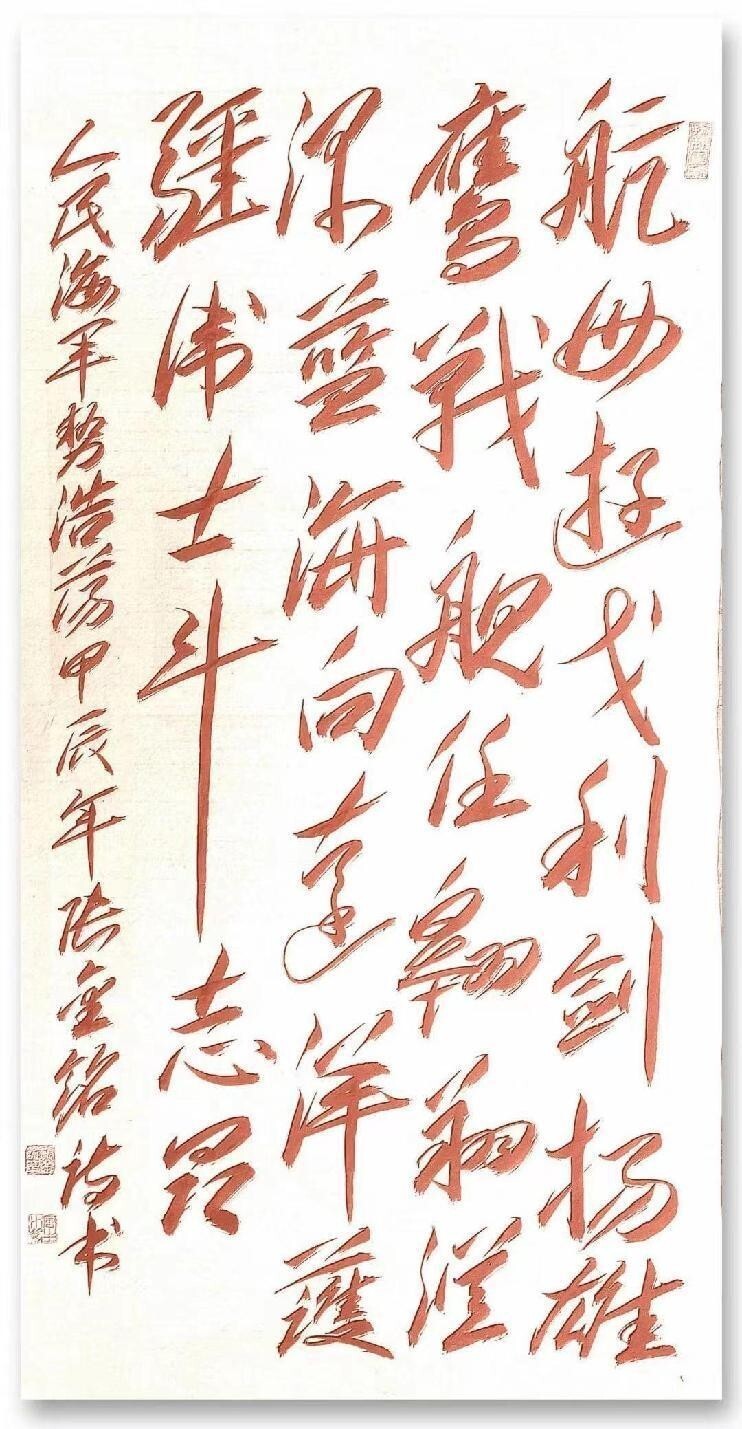 航母挺戈利剑扬雄
鹰战舰任翱翔從
深蓝海向遠洋護
疆衛士斗志昂
人民海军势浩荡甲辰年张金铭诗书